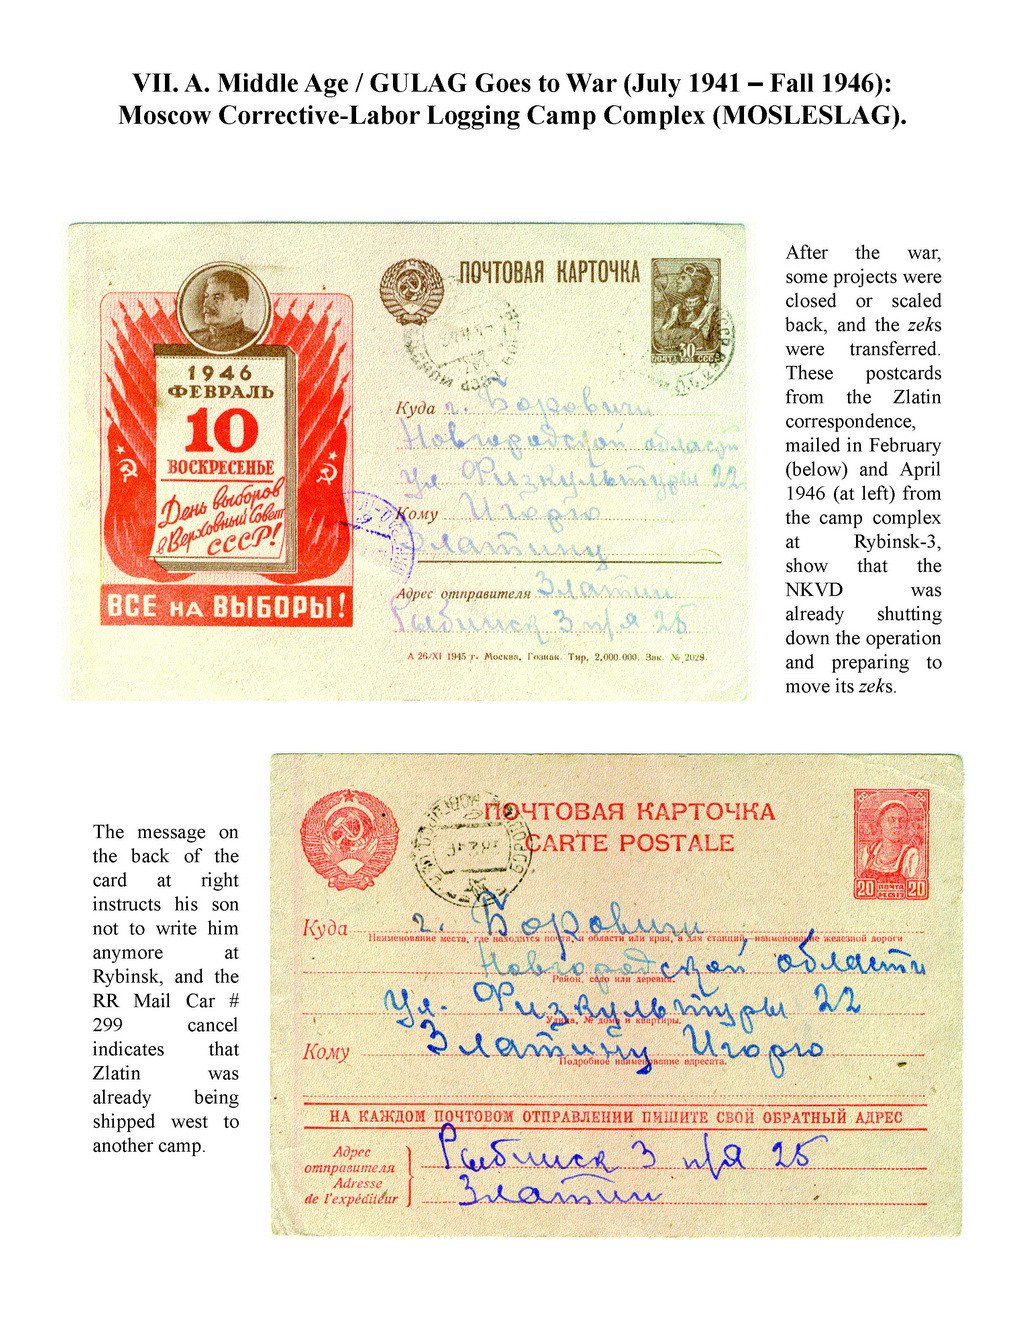 VII. A. Middle Age / GULAG Goes to War (July 1941 – Fall 1946):
Moscow Corrective-Labor Logging Camp Complex (MOSLESLAG).
ПОЧТОВАЯ КАРТОЧКА
30
ПОЧТА СССР
1946
ФЕВРАЛЬ
10
ВОСКРЕСЕНЬЕ
День выборов
в Верховный Совет
СССР!
ВСЕ НА ВЫБОРЫ!
Куда г. Боровичи
Новгородской области
ул Физкультуры 22
Кому Игорю
Златину
Адрес отправителя Златин
Рыбинск 3 п/я 25
А 26/XI 1945 г. Москва, Гознак. Тир. 2,000.000. Зак. № 2029.
After the war,
some projects were
closed or scaled
back, and the zeks
were transferred.
These postcards
from the Zlatin
correspondence,
mailed in February
(below) and April
1946 (at left) from
the camp complex
at Rybinsk-3,
show that the
NKVD was
already shutting
down the operation
and preparing to
move its zeks.
The message on
the back of the
card at right
instructs his son
not to write him
anymore at
Rybinsk, and the
RR Mail Car #
299 cancel
indicates that
Zlatin was
already being
shipped west to
another camp.
ПОЧТОВАЯ КАРТОЧКА
CARTE POSTALE
20 ПОЧТА 20
Куда г. Боровичи
Наименование места, где находится почта, и области или края, а для станций, наименование железной дороги
Новгородской области
Район, село или деревня.
Ул. Физкультуры 22
Улица, № дома и квартиры.
Кому Златину Игорю
Подробное наименование адресата.
НА КАЖДОМ ПОЧТОВОМ ОТПРАВЛЕНИИ ПИШИТЕ СВОЙ ОБРАТНЫЙ АДРЕС
Адрес
отправителя
Adresse
de l'expéditeur
Рыбинск 3 п/я 25
Златин